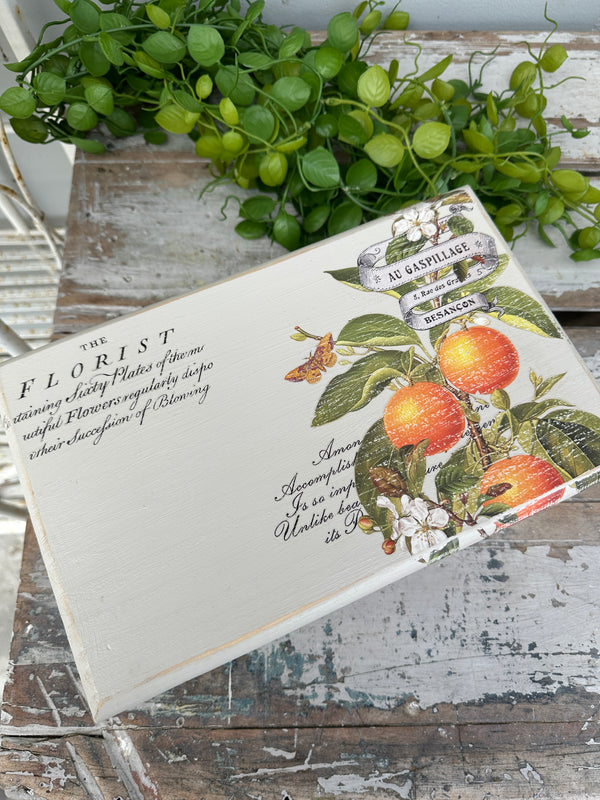 THE
FLORIST
taining Sixty Plates of the m
utiful Flowers regularly dispo
their Succession of Blowing
AU GASPILLAGE
5, Rue des Gra
BESANÇON
Among
Accomplis
Is so imp
Unlike bea
its P